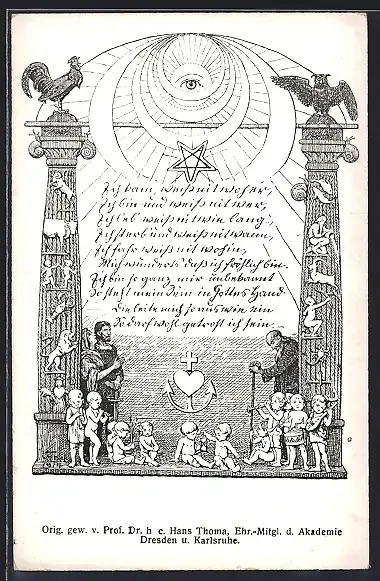 Ich kam, weiß nit woher,
Ich bin und weiß nit wer,
Ich leb weiß nit wie lang,
Ich sterb und weiß nit wann,
Ich fahr weiß nit wohin,
Mich wunderts daß ich fröhlich bin.
Ich bin so ganz mir unbekannt
So steht mein Sein in Gottes Hand
Die leite mich so aus wie ein
So darf wohl getrost ich sein.
Orig. gew. v. Prof. Dr. h c. Hans Thoma, Ehr.-Mitgl. d. Akademie
Dresden u. Karlsruhe.